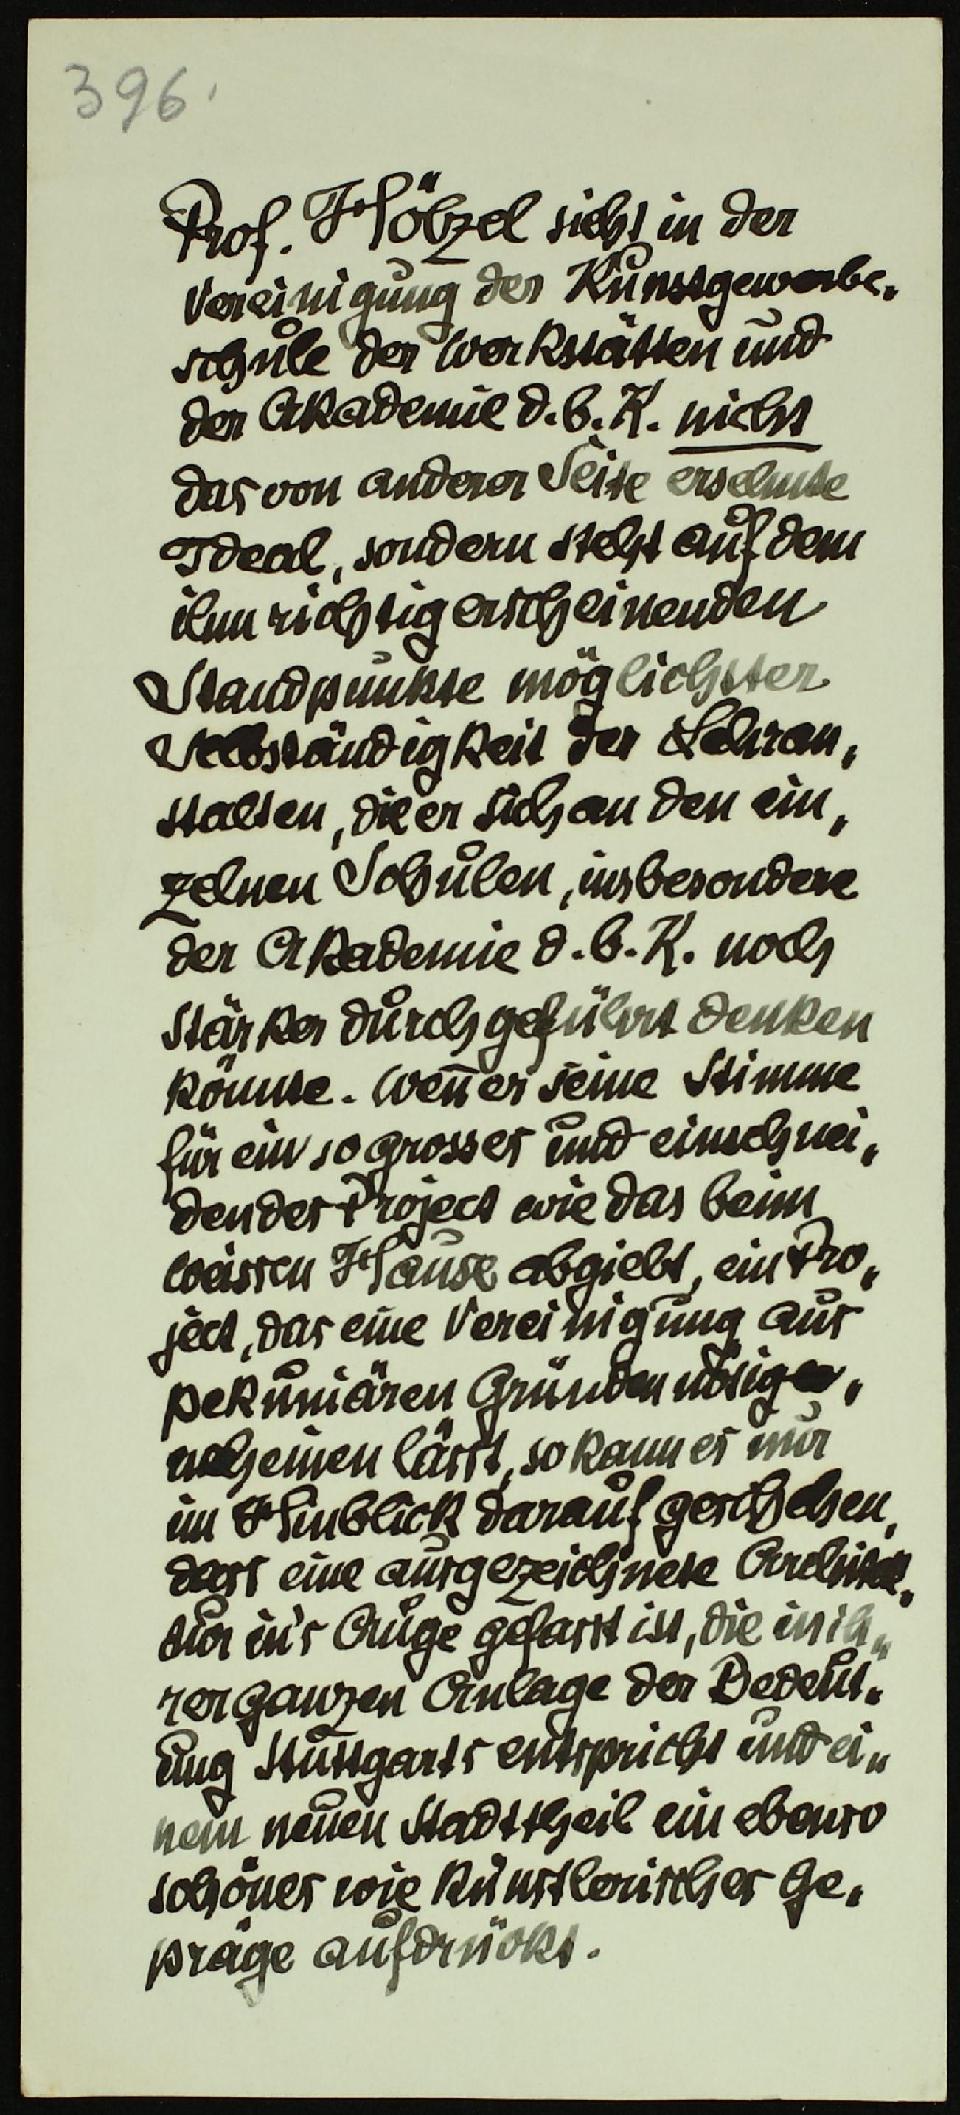 396.
Prof. Hölzel sieht in der
Vereinigung der Kunstgewerbe-
schule der Werkstätten und
der Akademie d. b. K. nicht
das von anderer Seite ersehnte
Ideal, sondern steht auf dem
ihm richtig erscheinenden
Standpunkte möglichster
Selbständigkeit der Lehran-
stalten, die er sich an den ein-
zelnen Schulen, insbesondere
der Akademie d. b. K. noch
stärker durchgeführt denken
könnte. Weñ er seine Stimme
für ein so grosses und einschnei-
dendes Project wie das beim
weissen Hause abgiebt, ein Pro-
ject, das eine Vereinigung aus
pekuniären Gründen nötig er-
scheinen lässt, so kann es nur
im Hinblick darauf geschehen,
dass eine ausgezeichnete Architek-
tur in's Auge gefasst ist, die in ih-
rer ganzen Anlage der Bedeut-
ung Stuttgarts entspricht und ei-
nem neuen Stadttheil ein ebenso
schönes wie künstlerisches Ge-
präge aufdrückt.